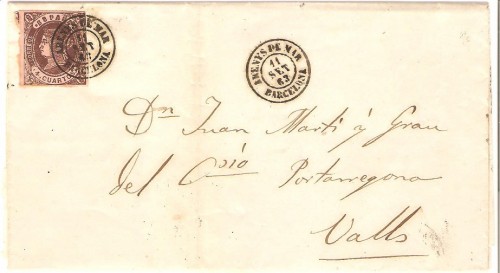 ESPAÑA
4 CUARTOS
ARENYS DE MAR
11
SET
63
BARCELONA
ARENYS DE MAR
11
SET
63
BARCELONA
Dn Juan Martí y Grau
del Csio Portarregona
Valls